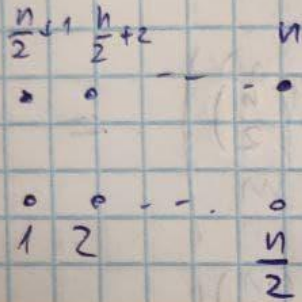 n/2+1 n/2+2 -- - n
1 2 - - . n/2